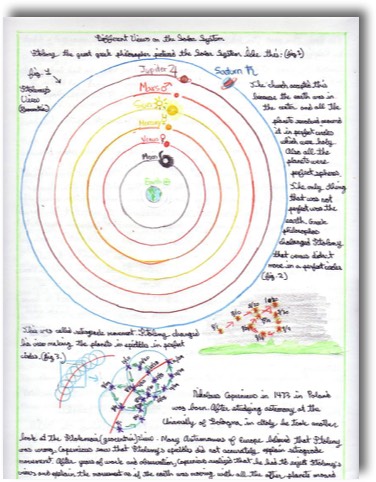 Different Views on the Solar System
Ptolemy the great greek philosopher pictured the Solar System like this:- (fig 1)
fig. 1
Ptolemy's
View
(Geocentric)
Jupiter ♃
Saturn ♄
Mars ♂
Sun
Mercury ☿
Venus ♀
Moon
Earth ⊕
The church accepted this
because the earth was in
the center and all the
planets revolved around
it in perfect circles
which were holy.
Also all the
planets were
perfect spheres.
The only thing
that was not
perfect was the
earth. Greek
philosophers
challenged Ptolemy
that venus didn't
move in a perfect circle
(fig. 2)
This was called retrograde movement. Ptolemy changed
his view making the planets in epicycles in perfect
circles. (fig 3.)
Nikolaus Copernicus in 1473 in Poland
was born. After studying astronomy at the
University of Bologna, in Italy, he took another
look at the Ptolemaic (geocentric) view. Many Astronomers of Europe believed that Ptolemy
was wrong. Copernicus saw that Ptolemy's epicycles did not accurately explain retrograde
movement. After years of work and observation, Copernicus realized that he had to reject Ptolemy's
views and explain the movement as if the earth was moving, with all the other planets around